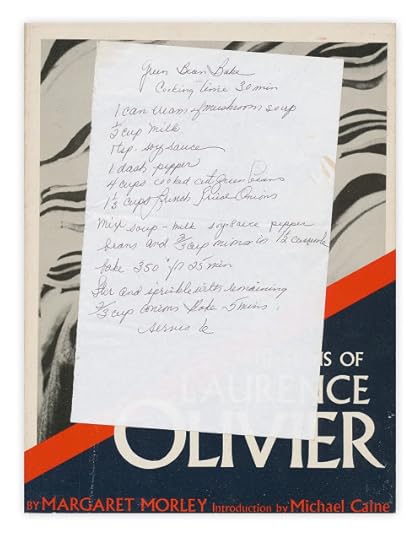 Green Bean Bake
Cooking time 30 min
1 can cream of mushroom soup
½ cup milk
1 tsp. soy sauce
1 dash pepper
4 cups cooked cut green Beans
1⅓ cups French Fried Onions
Mix soup - milk soy sauce pepper
beans and ⅔ cup onions in 1½ casserole
bake 350° for 25 min
Stir and sprinkle with remaining
⅔ cup onions Bake - 5 mins.
serves 6
S OF
LAURENCE
OLIVIER
BY MARGARET MORLEY Introduction by Michael Caine